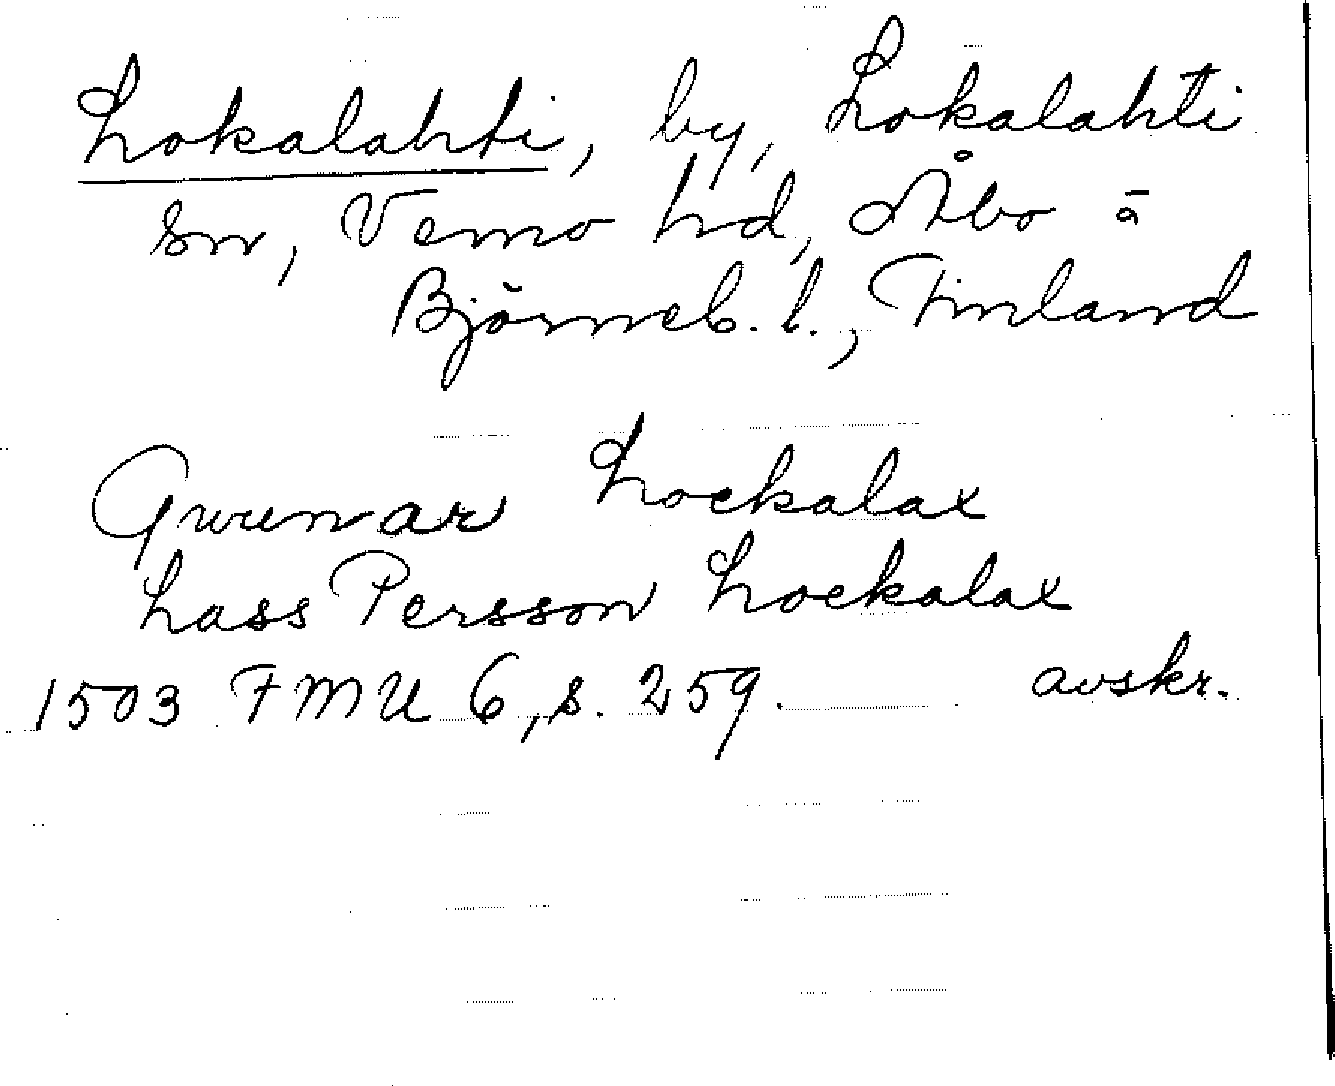 Lokalahti, by, Lokalahti
sn, Vemo hd, Åbo o
Björneb. l., Finland
Gwnnar Lockalax
Lass Persson Lockalax
1503 FMU 6, s. 259. avskr.